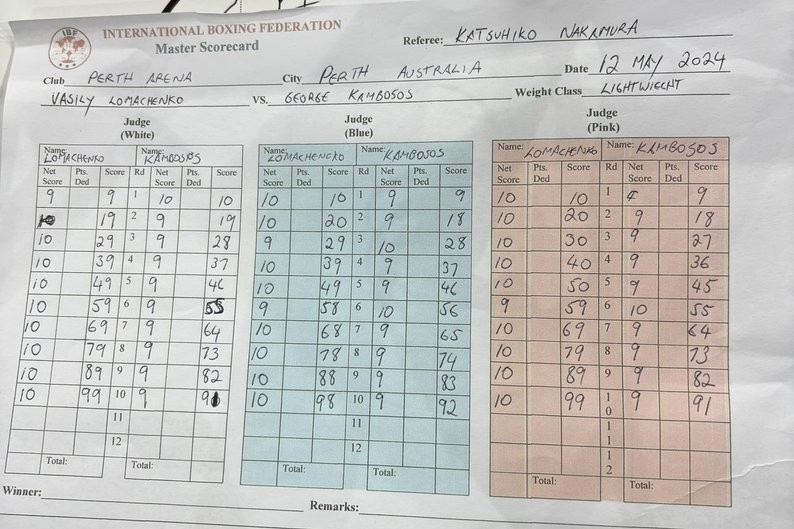 IBF
INTERNATIONAL BOXING FEDERATION
Master Scorecard
Referee: KATSUHIKO NAKAMURA
Club PERTH ARENA City PERTH AUSTRALIA Date 12 MAY 2024
VASILY LOMACHENKO VS. GEORGE KAMBOSOS Weight Class LIGHTWIECHT
Judge (White) Judge (Blue) Judge (Pink)
Name: LOMACHENKO Name: KAMBOSOS Name: LOMACHENCKO Name: KAMBOSOS Name: LOMACHENKO Name: KAMBOSOS
Net Score Pts. Ded Score Rd Net Score Pts. Ded Score Net Score Pts. Ded Score Rd Net Score Pts. Ded Score Net Score Pts. Ded Score Rd Net Score Pts. Ded Score
9 9 1 10 10 10 10 1 9 9 10 10 1 9
10 19 2 9 19 10 20 2 9 18 10 20 2 9 18
10 29 3 9 28 9 29 3 10 28 10 30 3 9 27
10 39 4 9 37 10 39 4 9 37 10 40 4 9 36
10 49 5 9 46 10 49 5 9 46 10 50 5 9 45
10 59 6 9 55 9 58 6 10 56 9 59 6 10 55
10 69 7 9 64 10 68 7 9 65 10 69 7 9 64
10 79 8 9 73 10 78 8 9 74 10 79 8 9 73
10 89 9 9 82 10 88 9 9 83 10 89 9 9 82
10 99 10 9 91 10 98 10 9 92 10 99 10 9 91
11 11 11
12 12 12
Total: Total: Total: Total: Total: Total:
Winner: Remarks: